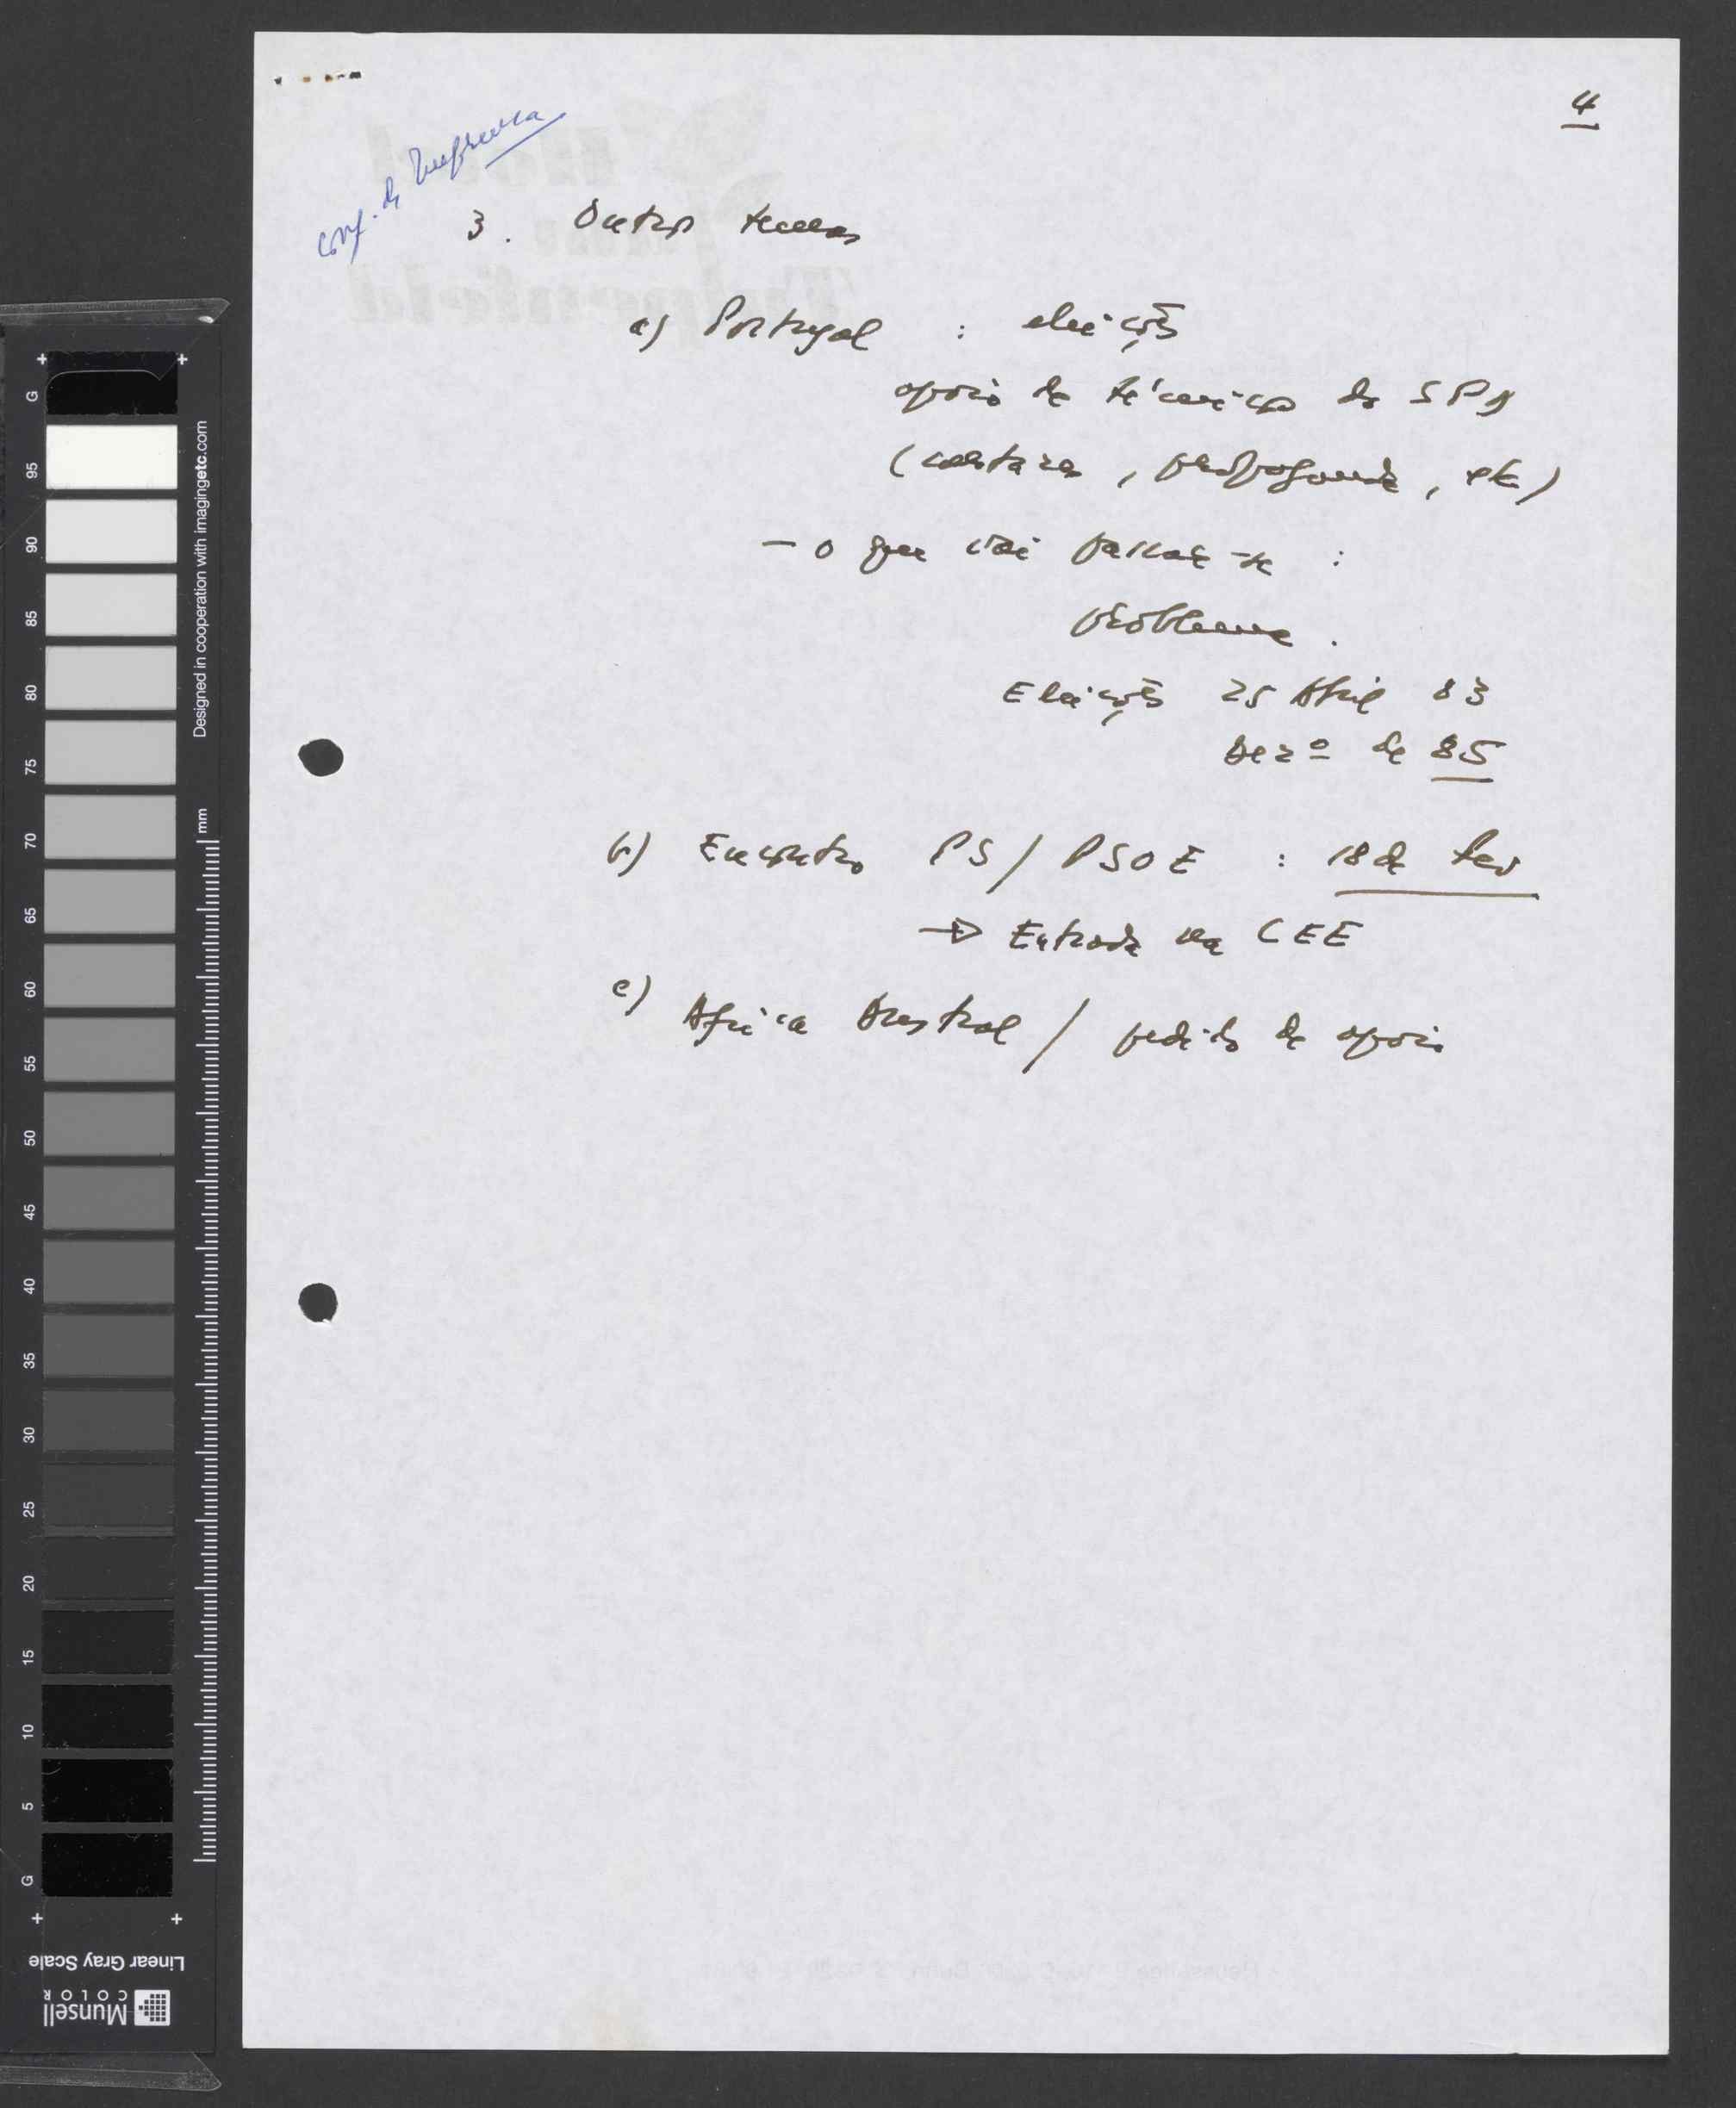 4
conf. de Imprensa
3. Outros temas
a) Portugal : eleições
apoio de técnicos do SPD
(cartazes, propaganda, etc)
— o que vai passar-se :
problemas.
Eleições 25 Abril 83
Dezº de 85
b) Encontro PS / PSOE : 18 de Fev
→ Entrada na CEE
c) Africa Austral / pedido de apoio
G
95
90
85
80
75
70
65
60
55
50
45
40
35
30
25
20
15
10
5
G
Designed in cooperation with imagingetc.com
mm
Linear Gray Scale
Munsell
COLOR